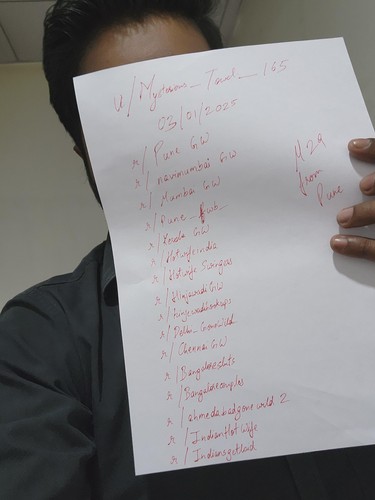 u/Mysterious_Towel_165
03/01/2025
r/Pune GW
r/navimumbai GW
r/Mumbai GW
r/Pune_
r/Kerala GW
r/Hotwife india
r/Hotwife Swingers
r/Hinjawadi GW
r/
r/Delhi_Gonewild
r/Chennai GW
r/Bangaloresluts
r/Bangalorecouples
r/ahmedabadgonewild 2
r/IndianHotwife
r/Indiansgetlaid
M 29
from
Pune